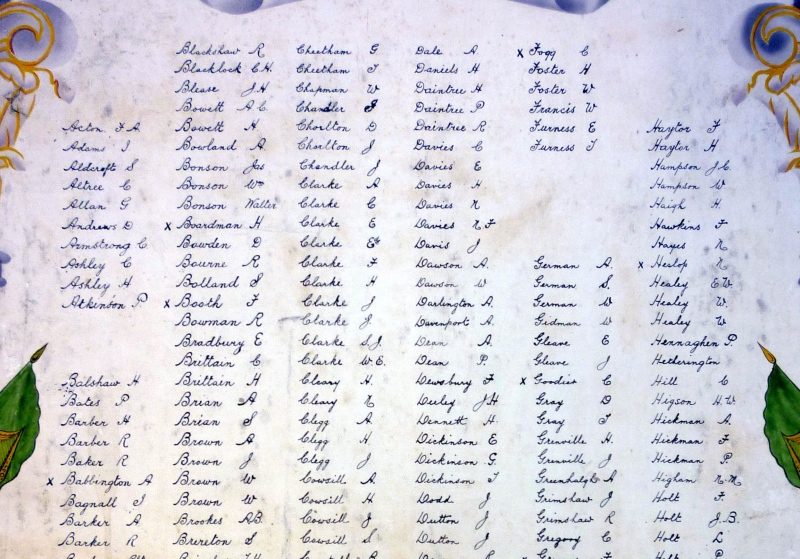 Acton F A.
Adams J
Aldcroft S
Altree C
Allan G
Andrews D
Armstrong C
Ashley C
Ashley H
Atkinson P
Balshaw H
Bates P
Barber H
Barber R
Baker R
x Babbington A
Bagnall J
Barker A
Barker R
Blackshaw R
Blacklock C.H.
Blease J.H
Bowett A C
Bowett H
Bowland A
Bonson Jas
Bonson Wm
Bonson Walter
x Boardman H
Bowden D
Bourne R
Bolland S
x Booth F
Bowman R
Bradbury E
Brittain C
Brittain H
Brian A
Brian S
Brown A
Brown J
Brown W
Brown W
Brookes A.B.
Brereton S
Cheetham G
Cheetham T
Chapman W
Chandler J
Chorlton D
Chorlton J
Chandler J
Clarke A
Clarke C
Clarke E
Clarke
Clarke F
Clarke H
Clarke J
Clarke J.
Clarke S.J.
Clarke W.E.
Cleary H.
Cleary N
Clegg A.
Clegg H.
Clegg J
Cowsill A
Cowsill H
Cowsill J
Cowsill S
Dale A
Daniels H
Daintree H
Daintree P
Daintree R
Davies C
Davies E
Davies H
Davies N
Davies N F
Davis J
Dawson A.
Dawson W
Darlington A.
Davenport A.
Dean A
Dean P.
Dewsbury F
Deeley J.H
Dennett H
Dickinson E
Dickinson G.
Dickinson T
Dodd J
Dutton J
Dutton J.
x Fogg C
Foster H
Foster W
Francis W
Furness E
Furness T
German A.
German S.
German W
Gidman W
Gleave E
Gleave J
x Goodier C
Gray D
Gray T
Grenville H.
Grenville J
Greenhalgh A
Grimshaw J
Grimshaw R
Gregory C
Haytor F
Hayter H
Hampson J.C.
Hampson W
Haigh H.
Hawkins F
Hayes N.
x Heslop N
Healey E.W.
Healey W.
Healey W
Hennaghen P.
Hetherington
Hill C
Higson H.W
Hickman A.
Hickman F
Hickman P.
Higham
Holt F.
Holt J.B.
Holt L